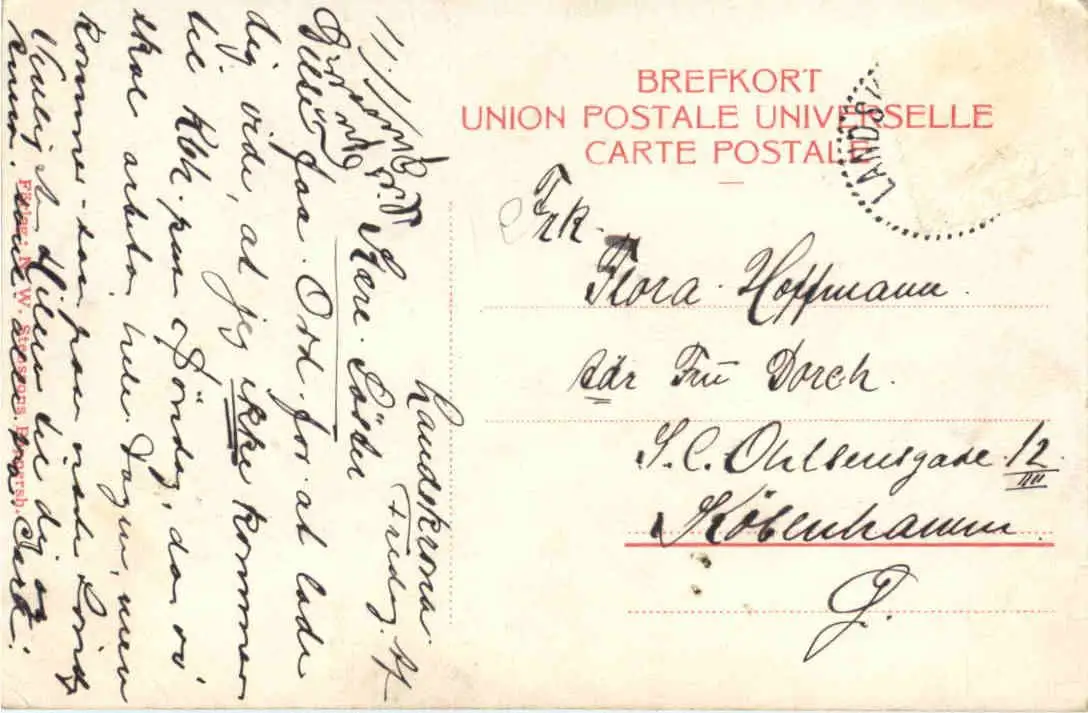 BREFKORT
UNION POSTALE UNIVERSELLE
CARTE POSTALE
LANDS
Frk.
Flora Hoffmann.
adr Fru Dorch.
S. C. Ohlsensgade 12
III
Köbenhamn.
G.
Landskrona
Fredag.
Kære Søster
faa Ord for at lade
dig vide, at jeg ikke kommer
til Kbh. paa Söndag, da vi
skal arbejde hele Dagen, men
kommer paa Sönd.
Venlig Hilsen til dig og
Förlag: N. W. Stensons Papersh.